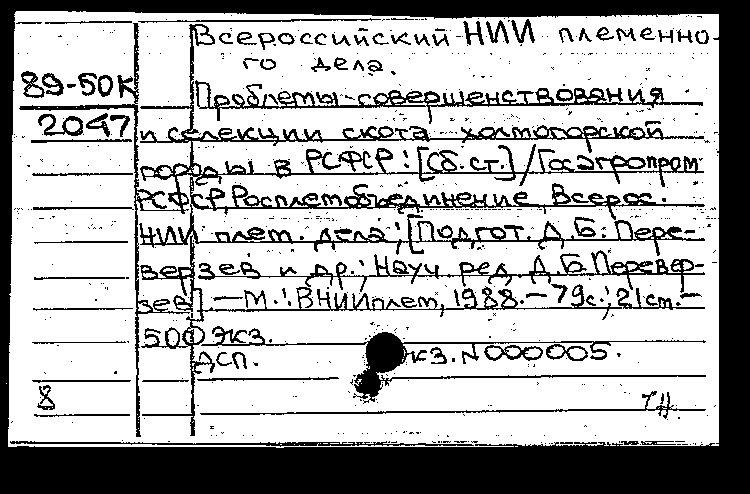 Всероссийский НИИ племенно-
го дела.
89-50К
Проблемы совершенствования
2047
и селекции скота холмогорской
породы в РСФСР: [Сб. ст.] / Госагропром
РСФСР, Росплемобъединение, Всерос.
НИИ плем. дела; [Подгот. Д. Б. Пере-
верзев и др.; Науч. ред. Д. Б. Перевер-
зев]. — М.: ВНИИплем, 1988. — 79 с.; 21 см. —
500 экз.
ДСП. кз. N 000005.
8